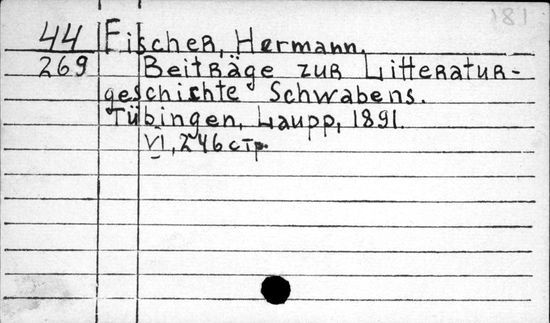 181
44 Fischer, Hermann.
269 Beiträge zur Litteratur-
geschichte Schwabens.
Tübingen, Laupp, 1891.
VI, 246 стр.